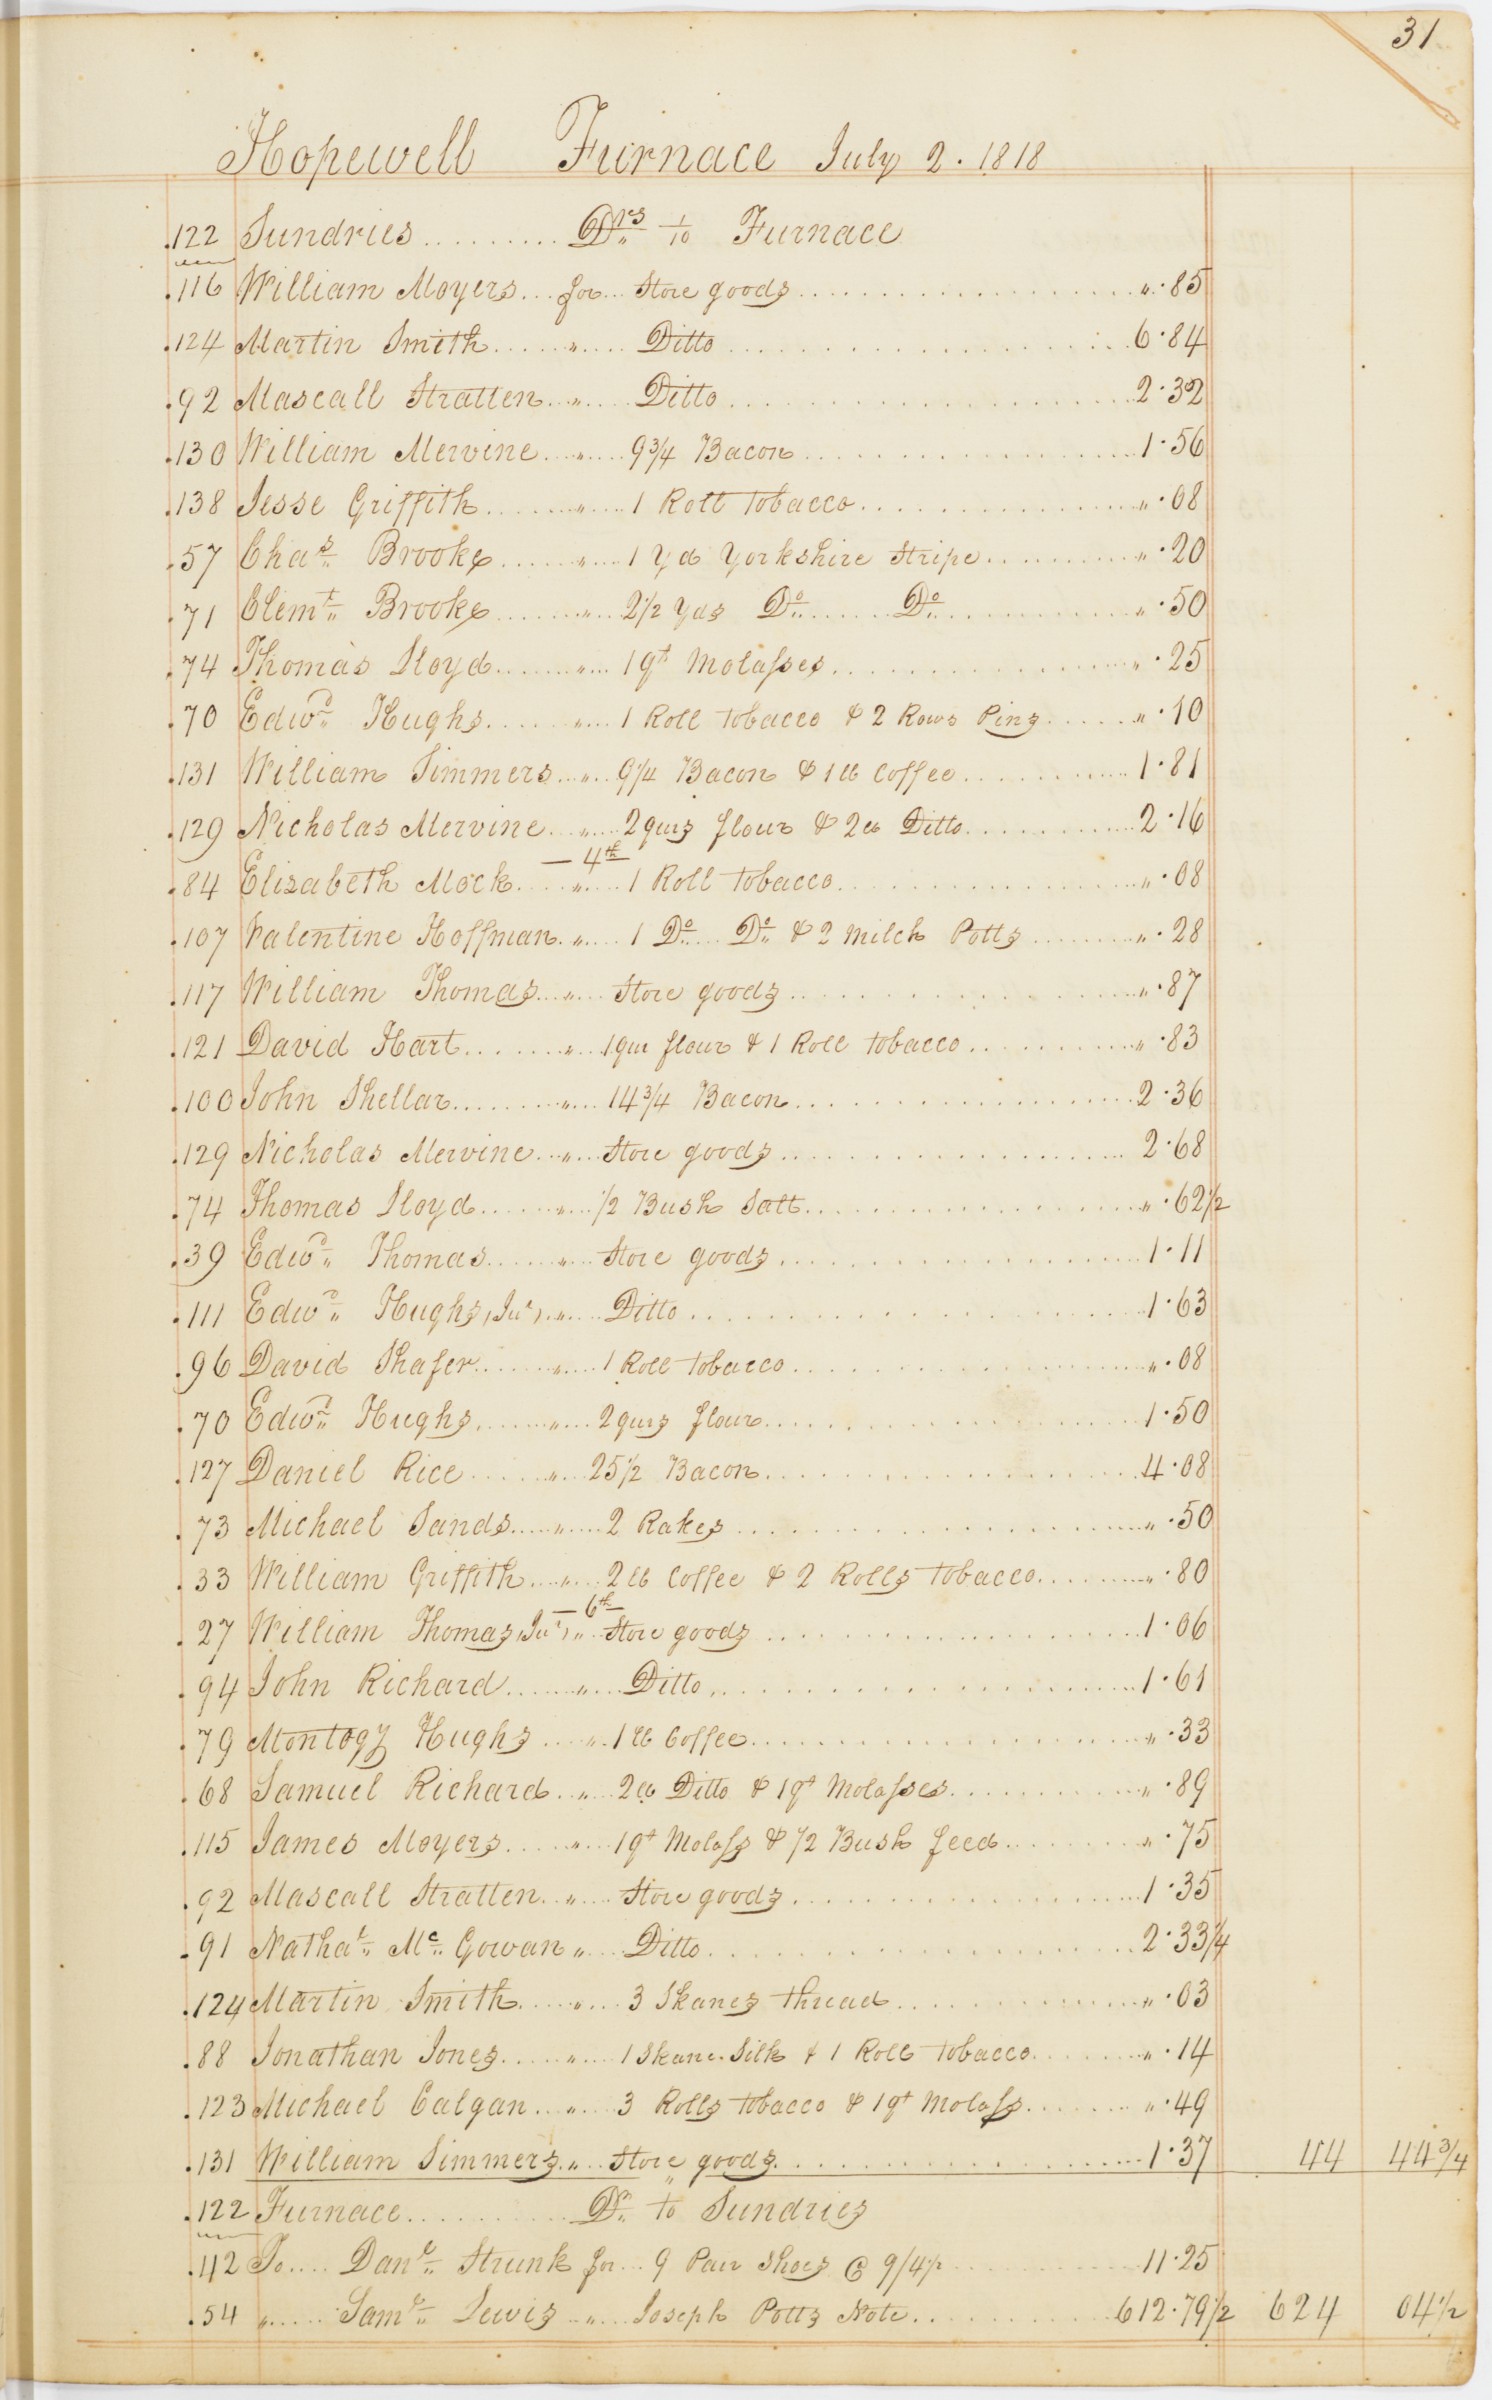 31
Hopewell Furnace July 2. 1818
.122 Sundries ......... Drs to Furnace
.116 William Moyers ... for ... Store goods ...... " .85
.124 Martin Smith ..... " .... Ditto ...... 6.84
.92 Mascall Stratten .. " .... Ditto ...... 2.32
.130 William Mervine ... " .... 9 3/4 Bacon ...... 1.56
.138 Jesse Griffith ...... " .... 1 Roll tobacco ...... " .08
.57 Chas Brooke ...... " ... 1 Yd Yorkshire Stripe ...... " .20
.71 Clemt Brooke ...... " ... 2 1/2 Yds Do ...... Do ...... " .50
.74 Thomas Lloyd ...... " ... 1 qt Molasses ...... " .25
.70 Edwd Hughs ...... " ... 1 Roll tobacco & 2 Rows Pins ...... " .10
.131 William Simmers ... " ... 9 1/4 Bacon & 1 lb Coffee ...... 1.81
.129 Nicholas Mervine ... " ... 2 qurs flour & 2 lb Ditto ...... 2.16
— 4th —
.84 Elizabeth Mock ... " ... 1 Roll tobacco ...... " .08
.107 Valentine Hoffman . " .... 1 Do .... Do & 2 milch Potts ...... " .28
.117 William Thomas ... " ... Store goods ...... " .87
.121 David Hart ...... " ... 1 qur flour & 1 Roll tobacco ...... " .83
.100 John Shellar ...... " ... 14 3/4 Bacon ...... 2.36
.129 Nicholas Mervine ... " ... Store goods ...... 2.68
.74 Thomas Lloyd ...... " ... 1/2 Bush Salt ...... " .62 1/2
.39 Edwd Thomas ...... " ... Store goods ...... 1.11
.111 Edwd Hughs, Jur, .. " .... Ditto ...... 1.63
.96 David Shafer ...... " ... 1 Roll tobacco ...... " .08
.70 Edwd Hughs ...... " ... 2 qurs flour ...... 1.50
.127 Daniel Rice ...... " ... 25 1/2 Bacon ...... 4.08
.73 Michael Sands ... " ... 2 Rakes ...... " .50
.33 William Griffith ... " ... 2 lb Coffee & 2 Rolls tobacco ...... " .80
— 6th —
.27 William Thomas, Jur, " .. Store goods ...... 1.06
.94 John Richard ...... " ... Ditto ...... 1.61
.79 Montogy Hughs ... " .. 1 lb Coffee ...... " .33
.68 Samuel Richard .. " ... 2 lb Ditto & 1 qt Molasses ...... " .89
.115 James Moyers ..... " ... 1 qt Molass & 1/2 Bush feed ...... " .75
.92 Mascall Stratten .. " ... Store goods ...... 1.35
.91 Nathal Mc Gowan " ... Ditto ...... 2.33 1/4
.124 Martin Smith ..... " ... 3 Skanes thread ...... " .03
.88 Jonathan Jones ..... " .... 1 Skane Silk & 1 Roll tobacco ...... " .14
.123 Michael Calgan .. " ... 3 Rolls tobacco & 1 qt Molass ...... " .49
.131 William Simmers .. " .. Store goods ...... 1.37 44 44 3/4
.122 Furnace .......... Dr to Sundries
.42 To .... Danl Strunk for ... 9 Pair Shoes @ 9/4 1/2 ...... 11.25
.54 " ..... Saml Lewis .. " ... Joseph Potts Note ...... 612.79 1/2 624 04 1/2